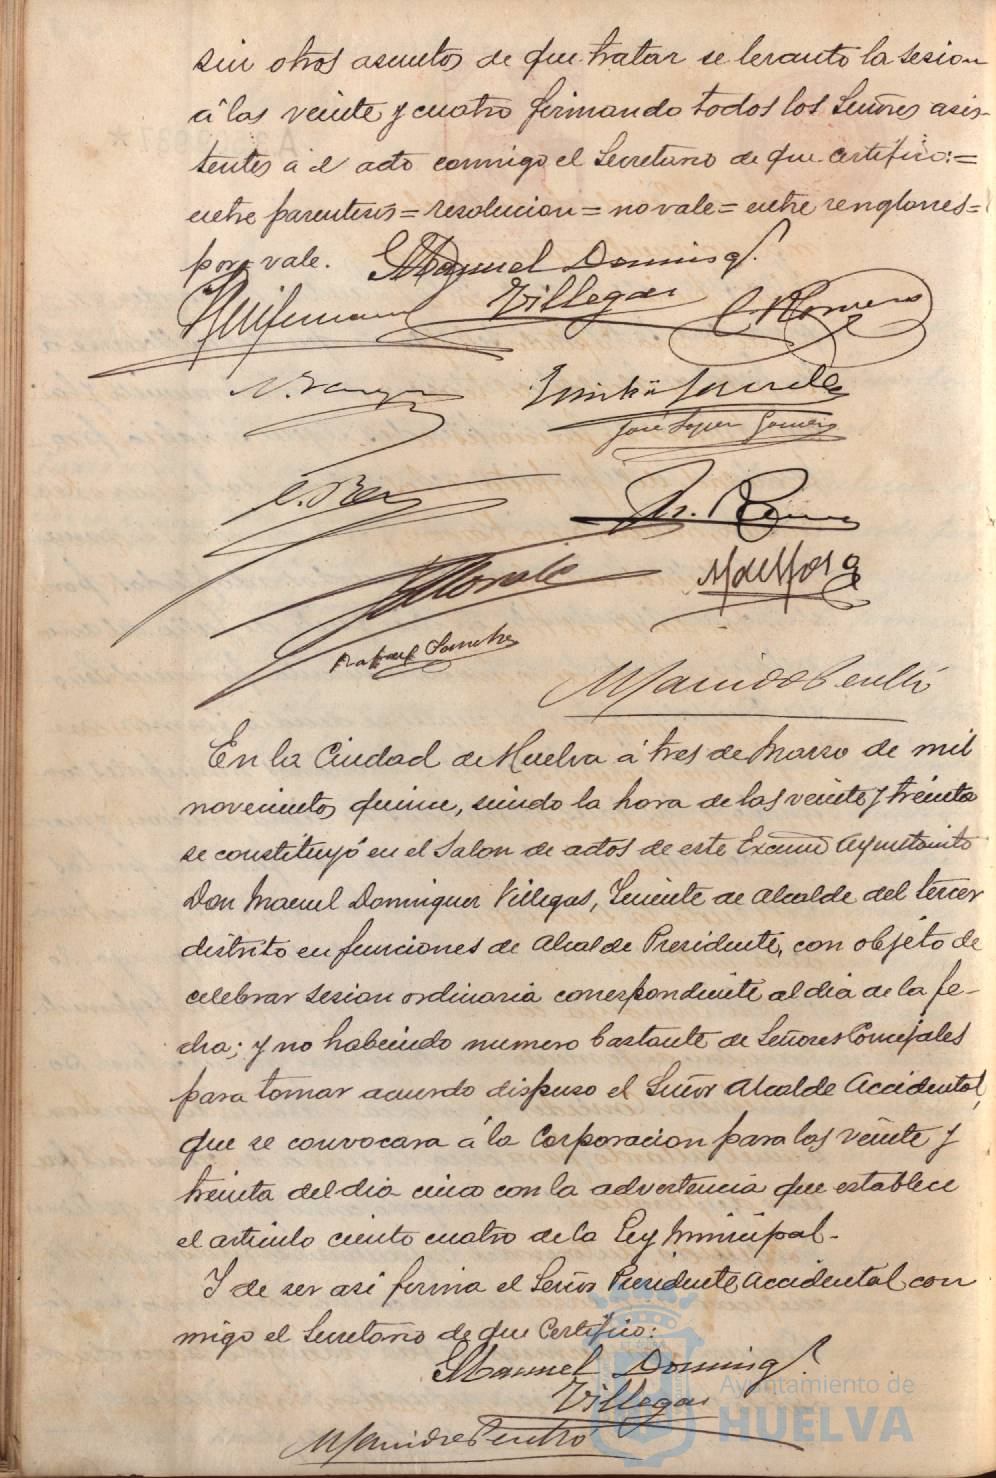 sin otros asuntos de que tratar se levanto la sesion
á las veinte y cuatro firmando todos los Señores asis-
tentes á el acto conmigo el Secretario de que certifico:=
entre parentesis=resolucion=no vale=entre renglones=
por, vale. Manuel Doming.
Villegas
José Lopez
Rafael Sanchez
En la Ciudad de Huelva á tres de Marzo de mil
novecientos quince, siendo la hora de las veinte y treinta
se constituyó en el Salon de actos de este Excmo Ayuntamito
Don Manuel Dominguez Villegas, Teniente de Alcalde del tercer
distrito en funciones de Alcalde Presidente, con objeto de
celebrar sesion ordinaria correspondiente al dia de la fe-
cha; y no habiendo numero bastante de Señores Concejales
para tomar acuerdo dispuso el Señor Alcalde Accidental,
que se convocara á la Corporacion para las veinte y
treinta del dia cinco con la advertencia que establece
el articulo ciento cuatro de la Ley Municipal.
Y de ser asi firma el Señor Presidente Accidental con
migo el Secretario de que Certifico:
Manuel Doming.
Villegas
Ayuntamiento de
HUELVA